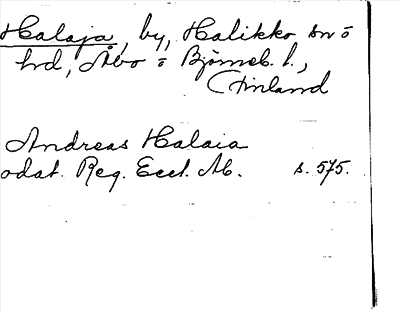 Halaja, by, Halikko sn o
hd, Åbo o Björneb. l.,
Finland
Andreas Halaia
odat. Reg. Eccl. Ab. s. 575.